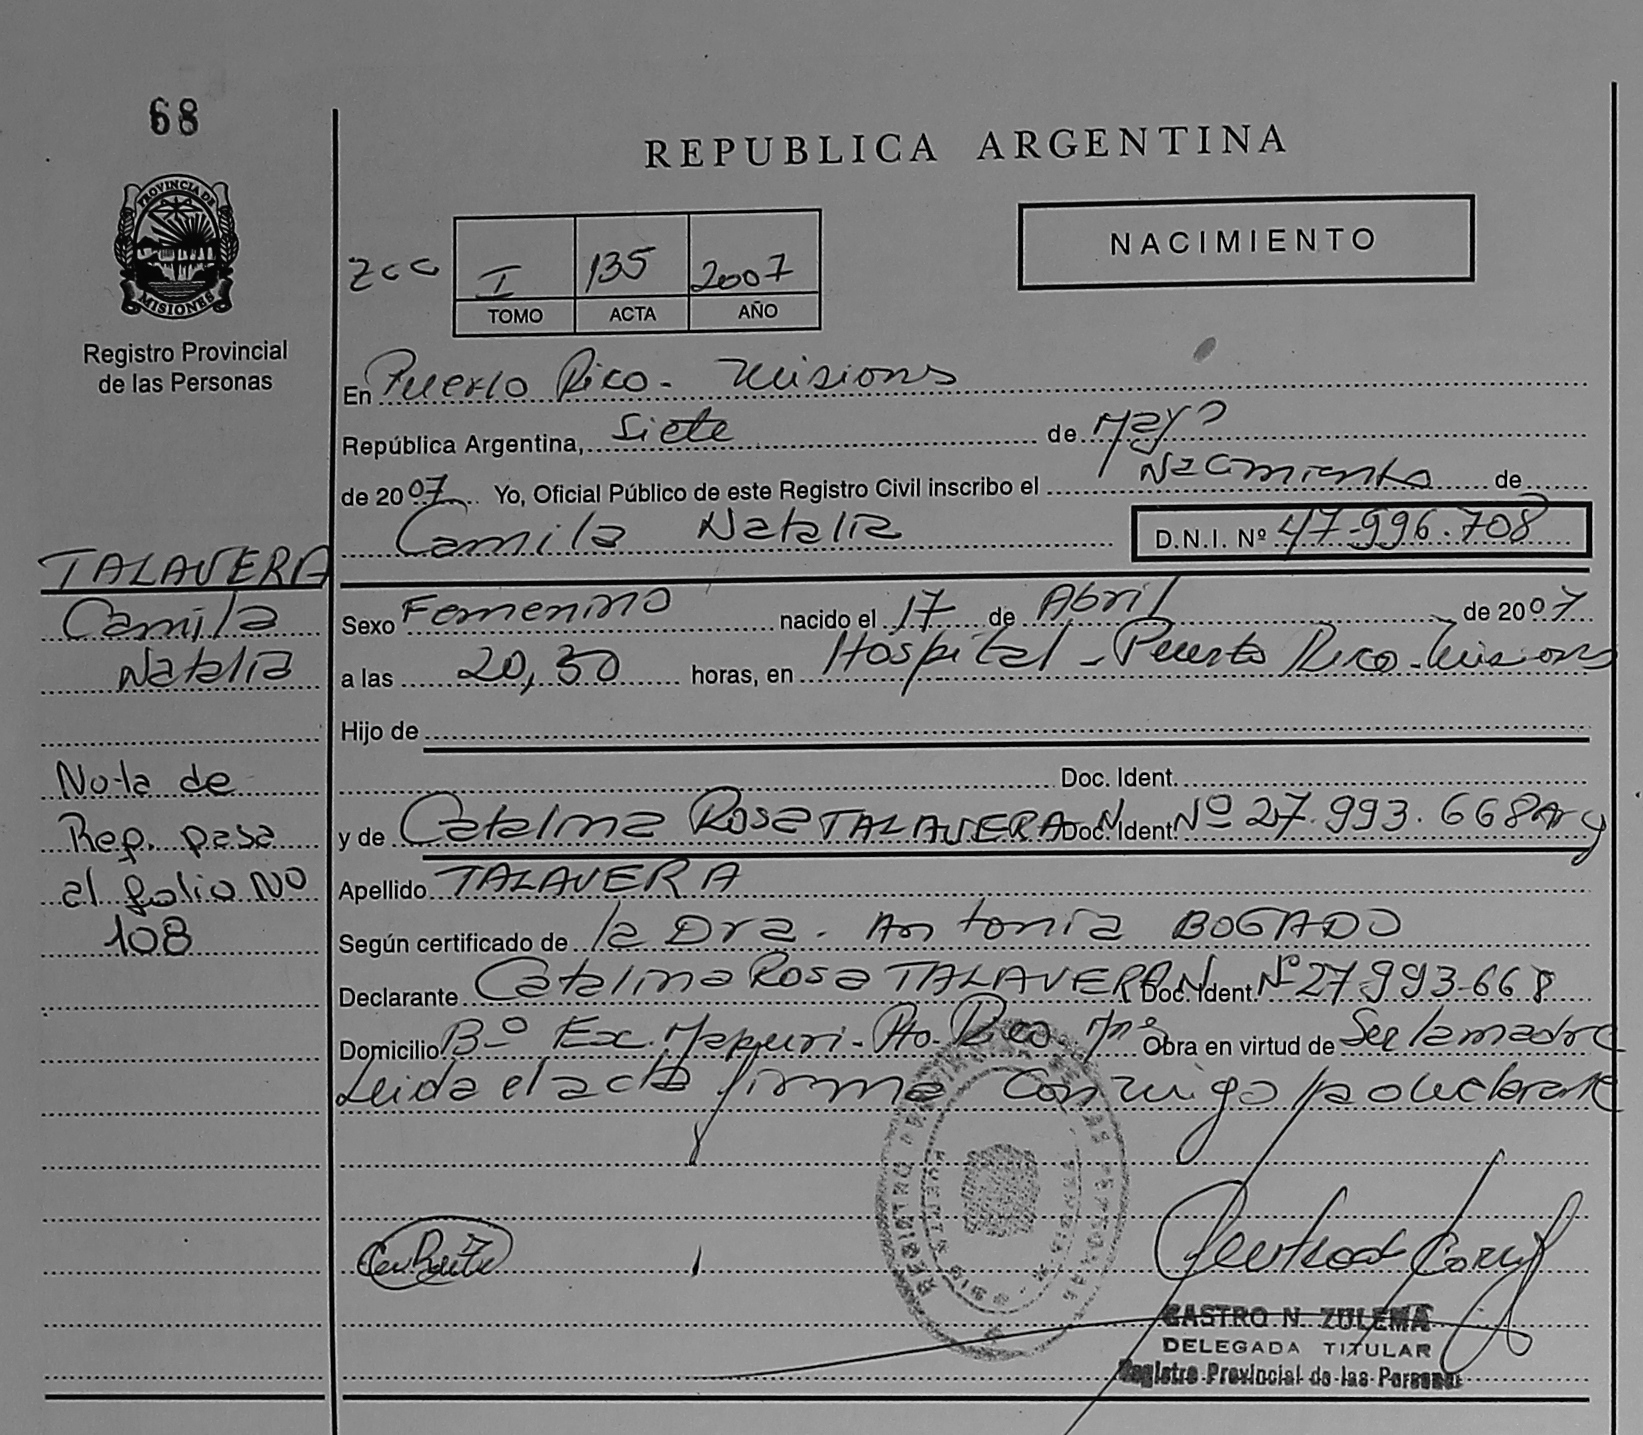 68
PROVINCIA DE
MISIONES
Registro Provincial
de las Personas
REPUBLICA ARGENTINA
NACIMIENTO
I 135 2007
TOMO ACTA AÑO
En Puerto Rico - Misiones
República Argentina, Siete de Mayo
de 2007 Yo, Oficial Público de este Registro Civil inscribo el Nacimiento de
Camila Natalia D.N.I. Nº 47.996.708
TALAVERA
Camila
Natalia
Sexo Femenino nacido el 17 de Abril de 2007
a las 20,30 horas, en Hospital - Puerto Rico - Misiones
Hijo de
Doc. Ident.
y de Catalina Rosa TALAVERA Doc. Ident. Nº 27.993.668 Arg
Nota de
Rep. pasa
al folio Nº
108
Apellido TALAVERA
Según certificado de la Dra. Antonia BOGADO
Declarante Catalina Rosa TALAVERA Doc. Ident. Nº 27.993.668
Domicilio Bº Ex. Mapuri - Pto. Rico. Mnes Obra en virtud de Ser la madre
Leida el acta firma conmigo la declarante
CASTRO N. ZULEMA
DELEGADA TITULAR
Registro Provincial de las Personas